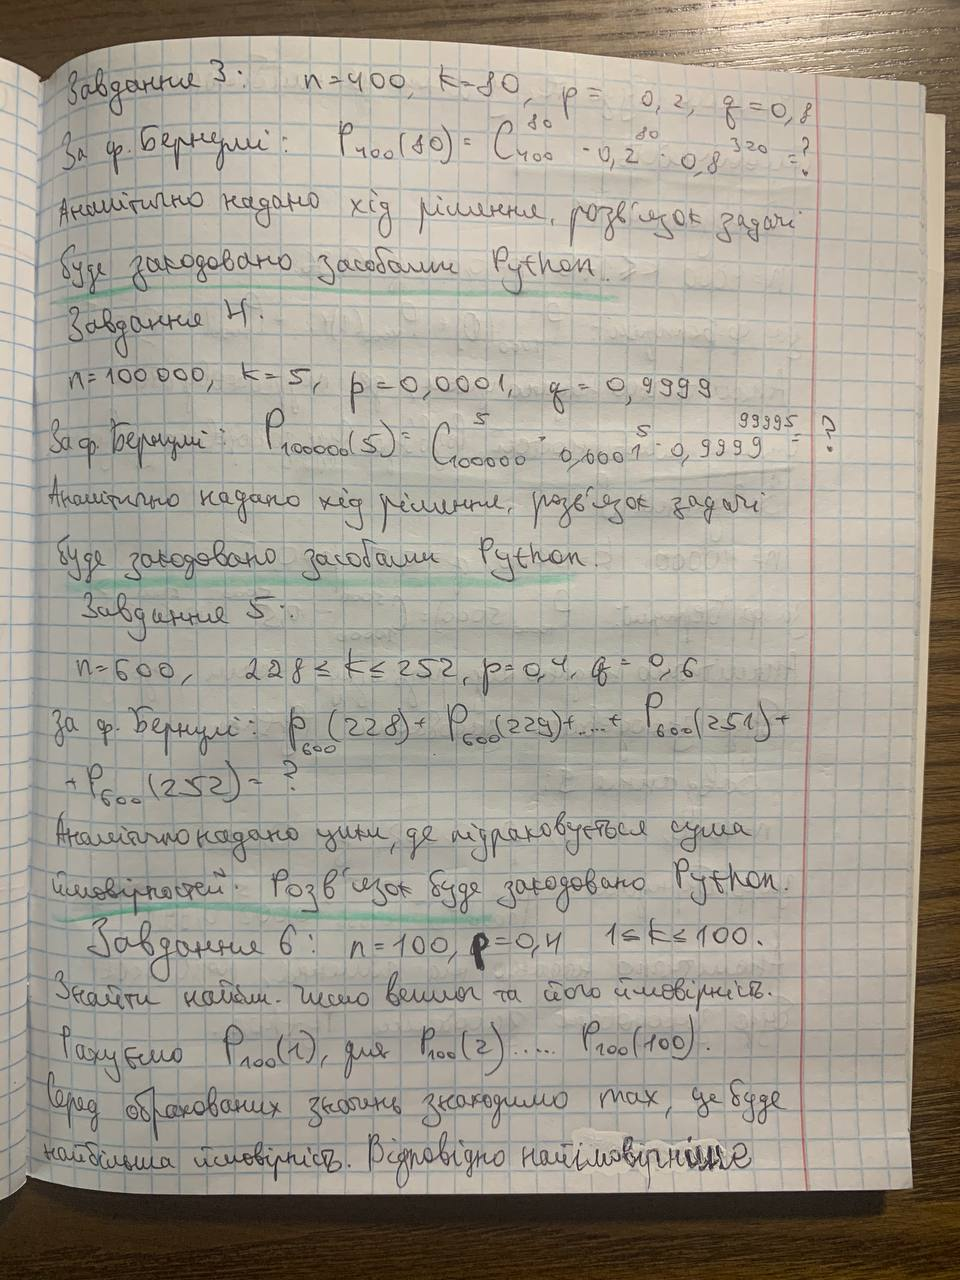 Завдання 3: n=400, k=80, p= 0,2, q=0,8
За ф. Бернулі: P₄₀₀(80)= C₄₀₀⁸⁰ · 0,2⁸⁰ · 0,8³²⁰ =?
Аналітично надано хід рішення, розв'язок задачі
буде закодовано засобами Python.
Завдання 4:
n=100000, k=5, p=0,0001, q=0,9999
За ф. Бернулі: P₁₀₀₀₀₀(5)= C₁₀₀₀₀₀⁵ · 0,0001⁵ · 0,9999⁹⁹⁹⁹⁵ = ?
Аналітично надано хід рішення, розв'язок задачі
буде закодовано засобами Python.
Завдання 5:
n=600, 228 ≤ k ≤ 252, p=0,4, q=0,6
За ф. Бернулі: P₆₀₀(228)+ P₆₀₀(229)+....+ P₆₀₀(251)+
+P₆₀₀(252)= ?
Аналітично надано цикл, де підраховується сума
ймовірностей. Розв'язок буде закодовано Python.
Завдання 6: n=100, p=0,4 1≤k≤100.
Знайти найбіл. число та його ймовірність.
Рахуємо P₁₀₀(1), для P₁₀₀(2)..... P₁₀₀(100).
Серед обрахованих значень знаходимо max, це буде
найбільша ймовірність. Відповідно найімовірніше